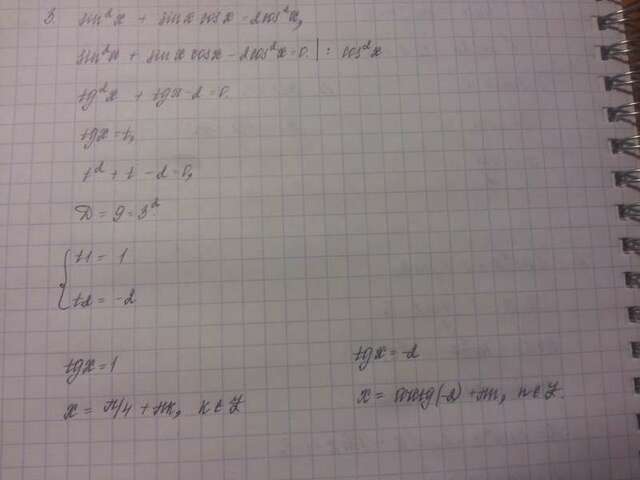 8 sin²x + sin x cos x = 2cos²x,
sin²x + sin x cos x - 2cos²x = 0 | : cos²x
tg²x + tgx - 2 = 0
tgx = t,
t² + t - 2 = 0,
D = 9 = 3²
{ t1 = 1
t2 = -2
tgx = 1
x = π/4 + πn, n ∈ Z
tgx = -2
x = arctg(-2) + πn, n ∈ Z.